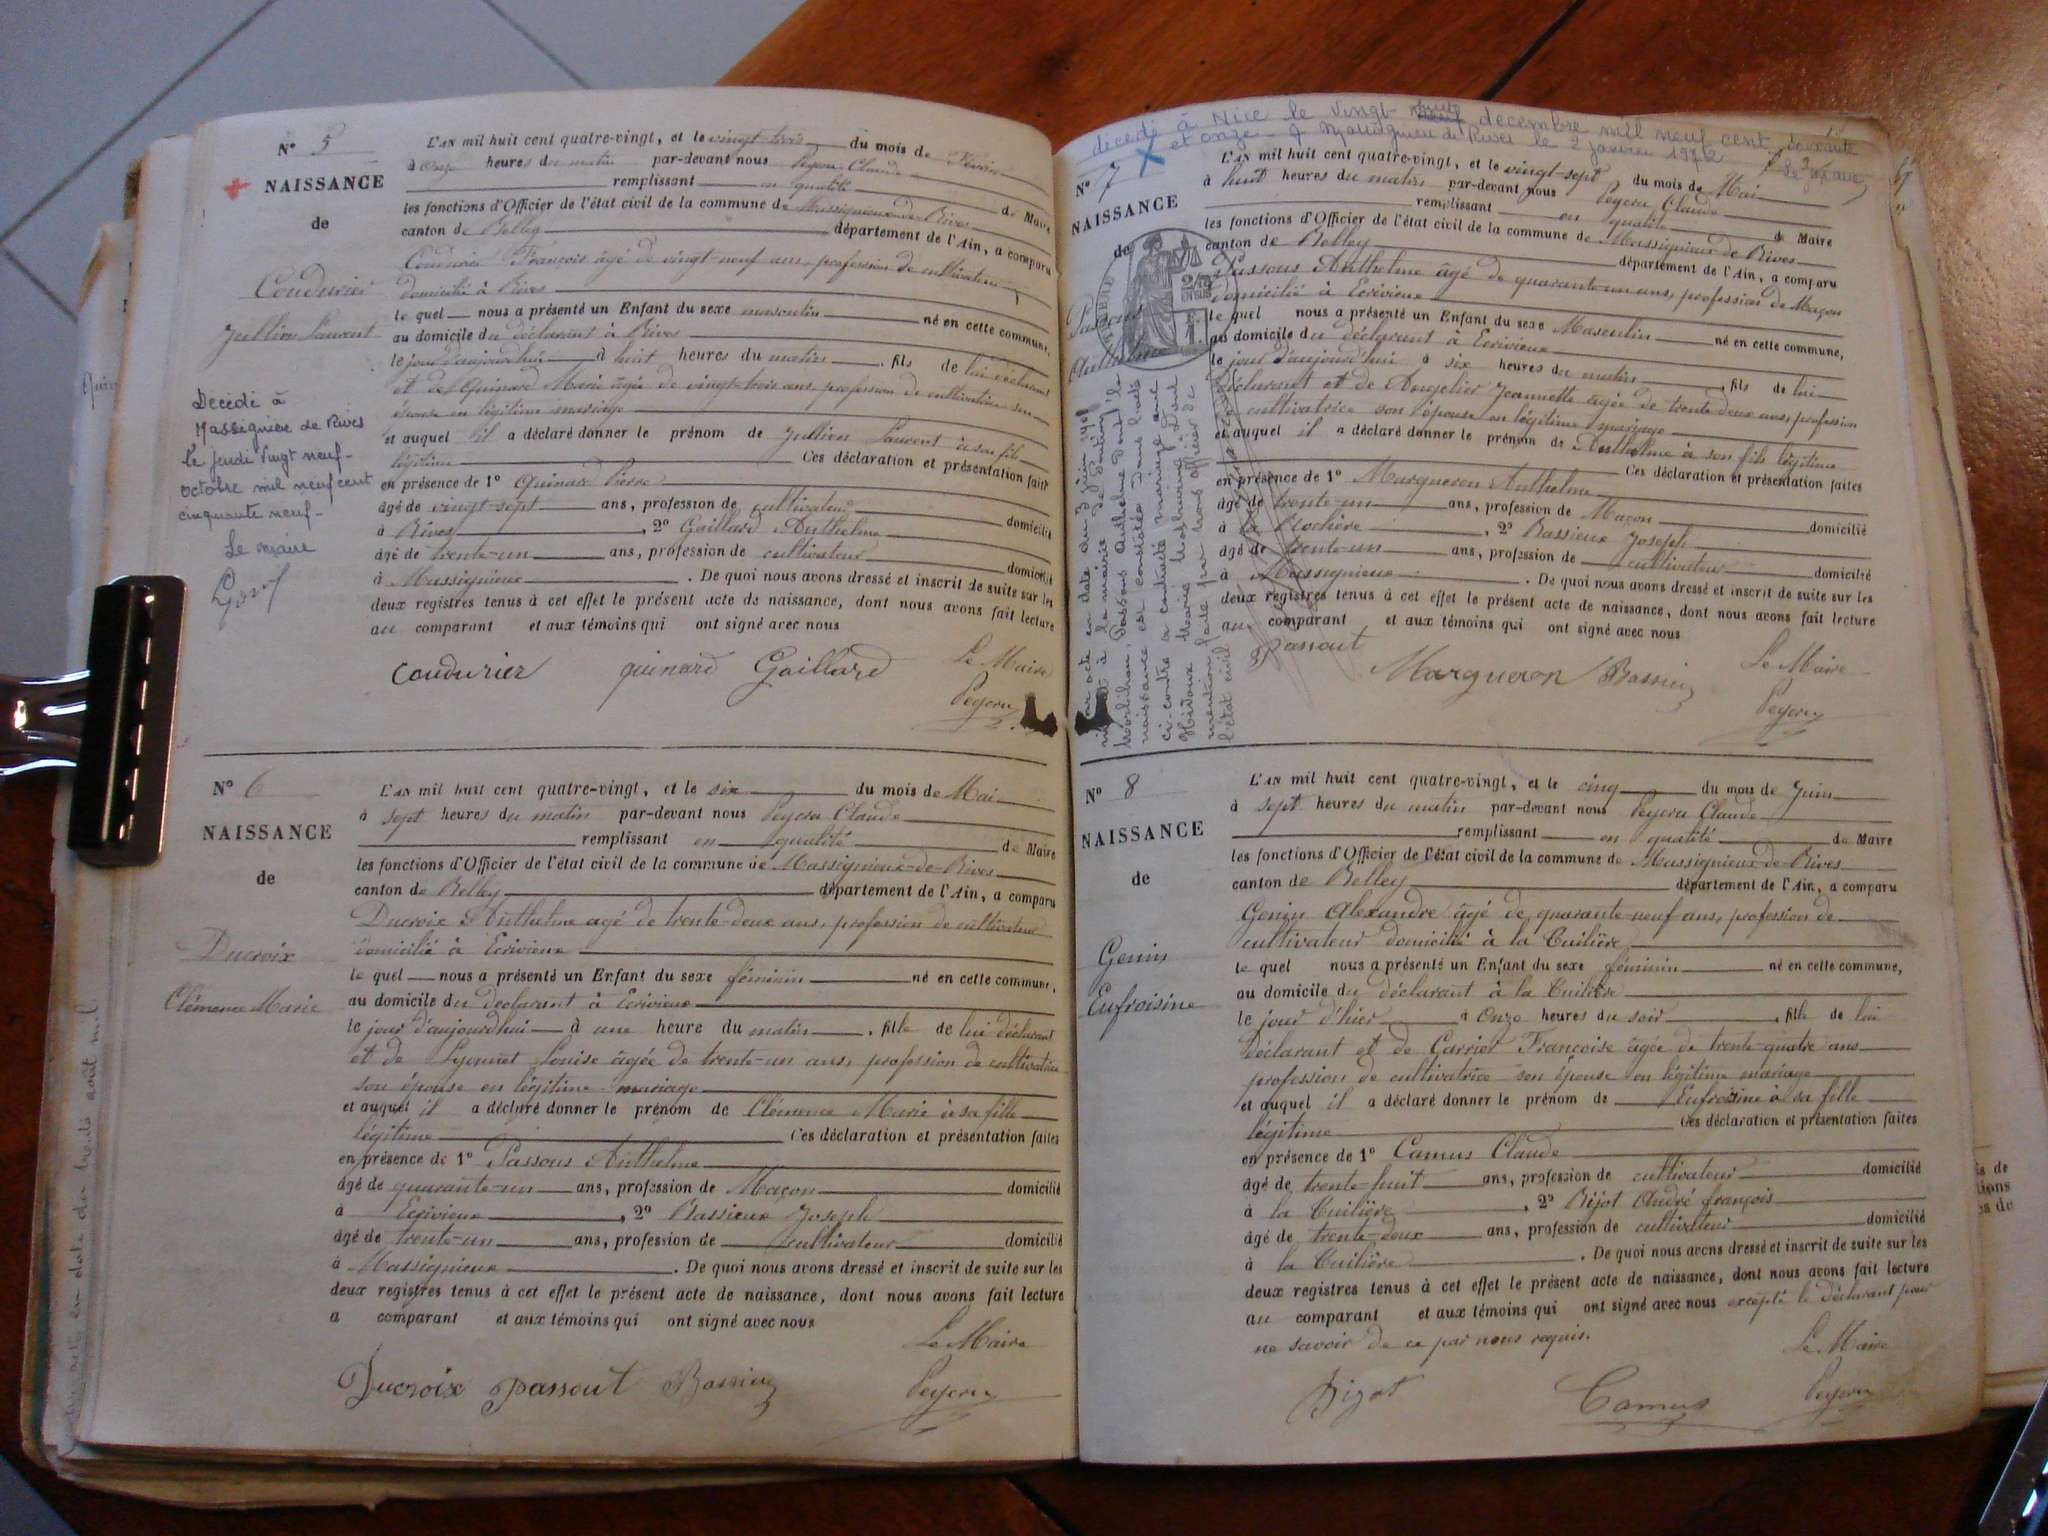 N° 5
NAISSANCE
de
Coudurier
Jullien Laurent
Décédé à
Massignieu de Rives
le jeudi vingt neuf
octobre mil neuf cent
cinquante neuf
Le maire
L'AN mil huit cent quatre-vingt, et le vingt-trois du mois de Février
à onze heures du matin par-devant nous Peycru Claude
remplissant en qualité de Maire
les fonctions d'Officier de l'état civil de la commune de Massignieux-de-Rives
canton de Belley département de l'Ain, a comparu
Coudurier François âgé de vingt-neuf ans, profession de cultivateur
domicilié à Rives
le quel nous a présenté un Enfant du sexe masculin né en cette commune,
au domicile du déclarant à Rives
le jour d'aujourd'hui à huit heures du matin, fils de lui déclarant
et de Quinard Marie âgée de vingt-trois ans, profession de cultivatrice son
épouse en légitime mariage
et auquel il a déclaré donner le prénom de Jullien Laurent à son fils
légitime Ces déclaration et présentation faites
en présence de 1° Quinard Pierre
âgé de vingt-sept ans, profession de cultivateur domicilié
à Rives, 2° Gaillard Anthelme
âgé de trente-un ans, profession de cultivateur domicilié
à Massignieux. De quoi nous avons dressé et inscrit de suite sur les
deux registres tenus à cet effet le présent acte de naissance, dont nous avons fait lecture
au comparant et aux témoins qui ont signé avec nous
Coudurier quinard Gaillard Le Maire
Peycru
N° 6
NAISSANCE
de
Ducroix
Clémence Marie
L'AN mil huit cent quatre-vingt, et le six du mois de Mai
à sept heures du matin par-devant nous Peycru Claude
remplissant en qualité de Maire
les fonctions d'Officier de l'état civil de la commune de Massignieux-de-Rives
canton de Belley département de l'Ain, a comparu
Ducroix Anthelme agé de trente-deux ans, profession de cultivateur
domicilié à Ecrivieux
le quel nous a présenté un Enfant du sexe féminin né en cette commune,
au domicile du déclarant à Ecrivieux
le jour d'aujourd'hui à une heure du matin, fille de lui déclarant
et de Lyonnet Louise âgée de trente-un ans, profession de cultivatrice
son épouse en légitime mariage
et auquel il a déclaré donner le prénom de Clémence Marie à sa fille
légitime Ces déclaration et présentation faites
en présence de 1° Passous Anthelme
âgé de quarante-un ans, profession de Maçon domicilié
à Ecrivieux, 2° Bassieux Joseph
âgé de trente-un ans, profession de cultivateur domicilié
à Massignieux. De quoi nous avons dressé et inscrit de suite sur les
deux registres tenus à cet effet le présent acte de naissance, dont nous avons fait lecture
a comparant et aux témoins qui ont signé avec nous
Le Maire
Ducroix Passout Bassieux Peycru
décédé à Nice le vingt huit decembre mil neuf cent soixante
et onze Massignieu de Rives le 2 janvier 1972
N° 7
NAISSANCE
de
Passous
Anthelme
L'AN mil huit cent quatre-vingt, et le vingt-sept du mois de Mai
à huit heures du matin par-devant nous Peycru Claude
remplissant en qualité de Maire
les fonctions d'Officier de l'état civil de la commune de Massignieux de Rives
canton de Belley département de l'Ain, a comparu
Passous Anthelme âgé de quarante-un ans, profession de Maçon
domicilié à Ecrivieux
le quel nous a présenté un Enfant du sexe Masculin né en cette commune,
au domicile du déclarant à Ecrivieux
le jour d'aujourd'hui à six heures du matin, fils de lui
déclarant et de Angelier Jeannette âgée de trente deux ans, profession
cultivatrice son épouse en légitime mariage
et auquel il a déclaré donner le prénom de Anthelme à son fils légitime
Ces déclaration et présentation faites
en présence de 1° Margueron Anthelme
âgé de trente-un ans, profession de Maçon domicilié
à la Rochère, 2° Bassieux Joseph
âgé de trente-un ans, profession de cultivateur domicilié
à Massignieux. De quoi nous avons dressé et inscrit de suite sur les
deux registres tenus à cet effet le présent acte de naissance, dont nous avons fait lecture
au comparant et aux témoins qui ont signé avec nous
Passout Margueron Bassieux Le Maire
Peycru
N° 8
NAISSANCE
de
Genin
Eufroisine
L'AN mil huit cent quatre-vingt, et le cinq du mois de Juin
à sept heures du matin par-devant nous Peycru Claude
remplissant en qualité de Maire
les fonctions d'Officier de l'état civil de la commune de Massignieux-de-Rives
canton de Belley département de l'Ain, a comparu
Genin Alexandre âgé de quarante-neuf ans, profession de
cultivateur domicilié à la Tuilière
le quel nous a présenté un Enfant du sexe féminin né en cette commune,
au domicile du déclarant à la Tuilière
le jour d'hier à onze heures du soir, fille de lui
déclarant et de Carrier Françoise âgée de trente-quatre ans
profession de cultivatrice son épouse en légitime mariage
et auquel il a déclaré donner le prénom de Eufroisine à sa fille
légitime Ces déclaration et présentation faites
en présence de 1° Camus Claude
âgé de trente-huit ans, profession de cultivateur domicilié
à la Tuilière, 2° Bijot André françois
âgé de trente-deux ans, profession de cultivateur domicilié
à la Tuilière. De quoi nous avons dressé et inscrit de suite sur les
deux registres tenus à cet effet le présent acte de naissance, dont nous avons fait lecture
au comparant et aux témoins qui ont signé avec nous excepté le déclarant pour
ne savoir de ce par nous requis.
Le Maire
Bizot Camus Peycru